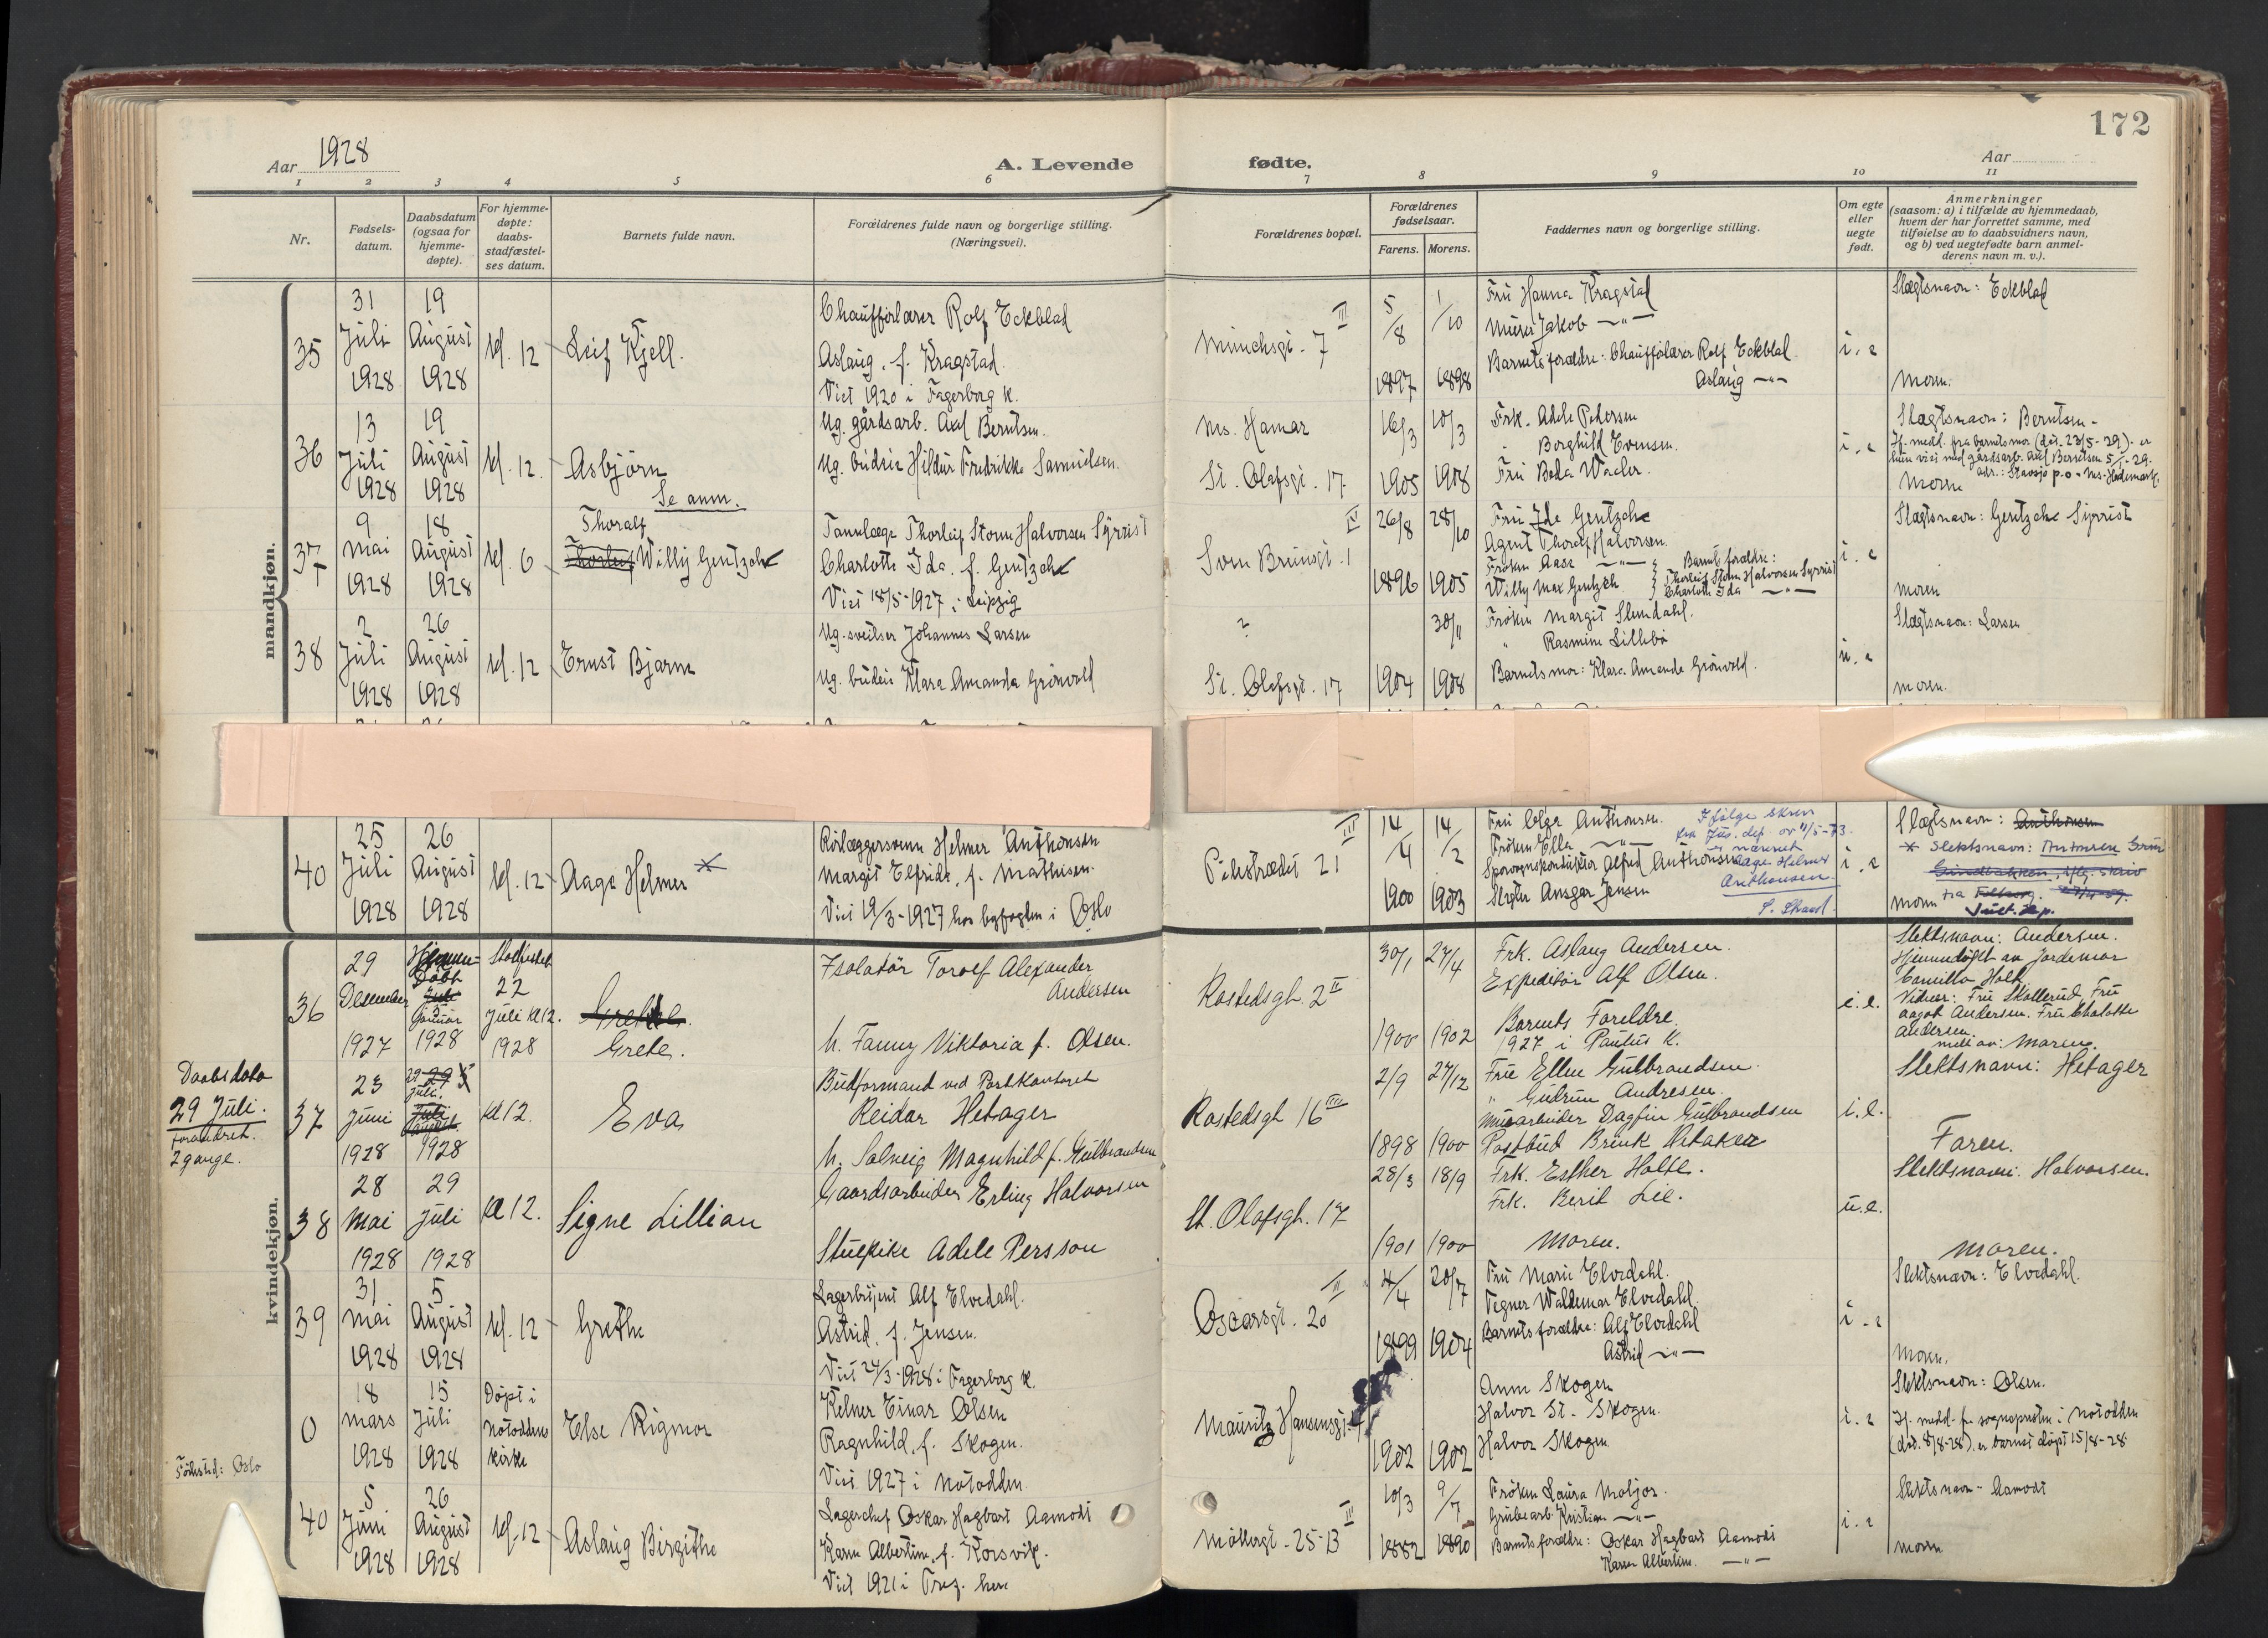 172
Aar 1928
A. Levende
fødte.
Aar
1 2 3 4 5 6 7 8 9 10 11
Nr.
Fødsels-
datum.
Daabsdatum
(ogsaa for
hjemme-
døpte).
For hjemme-
døpte:
daabs-
stadfæstel-
ses datum.
Barnets fulde navn.
Forældrenes fulde navn og borgerlige stilling.
(Næringsvei).
Forældrenes bopæl.
Forældrenes
fødselsaar.
Farens. Morens.
Faddernes navn og borgerlige stilling.
Om egte
eller
uegte
født.
Anmerkninger
(saasom: a) i tilfælde av hjemmedaab,
hvem der har forrettet samme, med
tilføielse av to daabsvidners navn,
og b) ved uegtefødte barn anmel-
derens navn m. v.).
mandkjøn.
35
31
Juli
1928
19
August
1928
kl. 12
Leif Kjell.
Chaufførlærer Rolf Eckblad
Aslaug, f. Kragstad.
Viet 1920 i Fagerborg k.
Munchsgt. 7 III
5/8
1897
1/10
1898
Fru Hanna Kragstad
Murer Jakob —"—
Barnets forældre: Chaufførlærer Rolf Eckblad.
Aslaug —"—
i. e
Slægtsnavn: Eckblad
moren.
36
13
Juli
1928
19
August
1928
kl. 12.
Asbjørn
Se anm.
Ug. gårdsarb. Axel Berntsen.
Ug. budeie Hildur Fredrikke Samuelsen.
Nes. Hamar
St. Olafsgt. 17
16/3
1905
10/3
1908
Frk. Adele Pedersen
" Borghild Evensen.
Fru Beda Wacler.
i. e
Slægtsnavn: Berntsen -
If. medd. fra barnets mor (dat. 23/5-29) - er
hun viet med gårdsarb. Axel Berntsen 5/1-29.
adr.: Stavsjø p.o - Nes-Hedemark.
Moren
37
9
Mai
1928
18
August
1928
kl. 6
Thoralf
Thorleif Willy Gentzsch
Tannlæge Thorleif Storm Halvorsen Syrrist
Charlotte Ida, f. Gentzsch
Viet 18/5-1927 i Leipzig
Sven Brunsgt. 1 IV
26/8
1896
28/10
1905
Fru Ida Gentzsch
Agent Thoralf Halvorsen.
Frøken Aase —"—
Willy Max Gentzsch
Barnets forældre:
Thorleif Storm Halvorsen Syrrist
Charlotte Ida —"—
i. e
Slægtsnavn: Gentzsch Syrrist
moren
38
2
Juli
1928
26
August
1928
kl. 12
Ernst Bjarne
Ug. sveitser Johannes Larsen
Ug. budeie Klara Amanda Grønvold
?
St. Olafsgt. 17
1904
30/11
1908
Frøken Margit Slemdahl.
" Rasmine Lillebø
Barnets mor: Klara Amanda Grønvold.
u. e
Slægtsnavn: Larsen
moren.
40
25
Juli
1928
26
August
1928
kl. 12
Aage Helmer *
Rørlæggersvenn Helmer Anthonsen
Margit Elfrida, f. Mathisen.
Viet 19/3-1927 hos byfogden i Oslo
Pilestrædet 21 III
14/4
1900
14/2
1903
Fru Olga Anthonsen.
Frøken Ella —"—
Sporvognskonduktør Alfred Anthonsen
Slagter Ansgar Jensen
Ifølge skriv
fra Jus. dep. av 11/5-73.
er navnet
Aage Helmer
Anthonsen.
i. e
Slægtsnavn: Anthonsen
* Slektsnavn:
moren
Just. dep.
kvindekjøn.
36
29
Desember
1927
Hjemme-
Døbt
Juli
5
Januar
1928
Stadfestet
22
Juli kl 12.
1928
Grethe.
Grete.
Isolatør Toralf Alexander
Andersen
h. Fanny Viktoria f. Olsen.
Rostedsgt. 2 II
30/1
1900
27/4
1902
Frk. Aslaug Andersen.
Expeditør Alf Olsen.
Barnets Foreldre.
1927 i Paulus K.
e. e.
Slektsnavn: Andersen.
Hjemmedøpt av Jordemor
Camilla Holt
Vidner: Fru Skollerud Fru
Aagot Andersen. Fru Charlotte
Andersen.
meld av: Moren.
Daabsdato
29 Juli.
forandret.
2 gange.
37
23
Juni
1928
29
Juli.
1928
kl 12.
Eva
Budformand ved Postkontoret
Reidar Hetager
h. Solveig Magnhild f. Gulbrandsen
Rostedsgt 16 III
2/9
1898
27/12
1900
Frue Ellen Gulbrandsen
" Gudrun Andresen.
Murarbeider Dagfin Gulbrandsen
Postbud Brynk Hetaker
i. e.
Slektsnavn: Hetager
Faren.
38
28
Mai
1928
29
Juli
1928
kl 12.
Signe Lillian
Gaardsarbeider Erling Halvorsen
Stuepike Adele Persson
St. Olafsgt. 17
28/3
1901
18/9
1900
Frk. Esther Holte.
Frk. Berit Lie.
Moren.
u. e.
Slektsnavn: Halvorsen.
Moren.
39
31
Mai
1928
5
August
1928
kl. 12
Grethe
Lagerbetjent Alf Elvedahl.
Astrid, f. Jensen.
Viet 24/3-1928 i Fagerborg k.
Oscarsgt. 20 II
4/4
1899
20/7
1904
Fru Marie Elvedahl.
Tegner Waldemar Elvedahl.
Barnets forældre: Alf Elvedahl
Astrid —"—
i. e
Slektsnavn: Elvedahl.
Moren.
0
18
Mars
1928
15
Juli
1928
Døpt i
Notodden
kirke
Else Rigmor
Kelner Einar Olsen
Ragnhild, f. Skogen.
Viet 1927 i Notodden
Mauritz Hansensgt.
1902
1902
Ann Skogen
Halvor St. Skogen.
Halvor Skogen
i. e
Slektsnavn: Olsen.
If. medd. fra sogneprsten i Notodden
(dat. 8/8-28) er barnet døpt 15/8-28
Fødested: Oslo
40
5
Juni
1928
26
August
1928
kl. 12
Aslaug Birgithe
Lagerchef Oskar Hagbart Aamodt
Karen Albertine, f. Korsvik.
Viet 1921 i Tref. her
Møllergt. 25 B III
10/3
1882
9/7
1890
Frøken Laura Moljor.
Grubearb. Kristian —"—
Barnets forældre: Oskar Hagbart Aamodt
Karen Albertine. —"—
i. e
Slektsnavn - Aamodt
moren